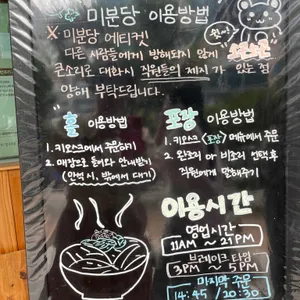 미분당 이용방법
X 미분당 에티켓
다른 사람들에게 방해되지 않게 소곤소곤
큰소리로 대화시 직원들의 제지가 있는 점
양해 부탁드립니다.
홀 이용방법
1. 키오스크에서 주문하기
2. 매장으로 들어와 안내받기
(만석시, 밖에서 대기)
포장 이용방법
1. 키오스크 (포장) 메뉴에서 주문
2. 완조리 or 비조리 선택 후
직원에게 말해주기
이용시간
영업시간
11AM ~ 21PM
브레이크 타임
3PM ~ 5PM
마지막 주문
14:45 / 20:30